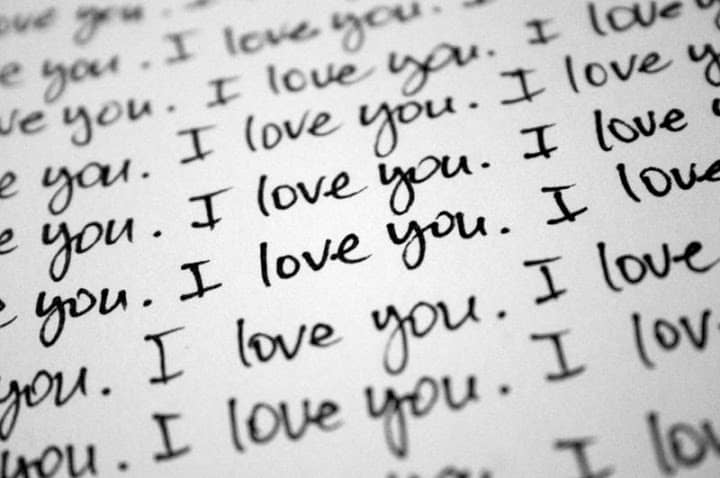 ove you.
e you. I love you.
ve you. I love you. I love
e you. I love you. I love y
e you. I love you. I love
you. I love you. I love
you. I love you. I love
you. I love you. I lov
you. I lov